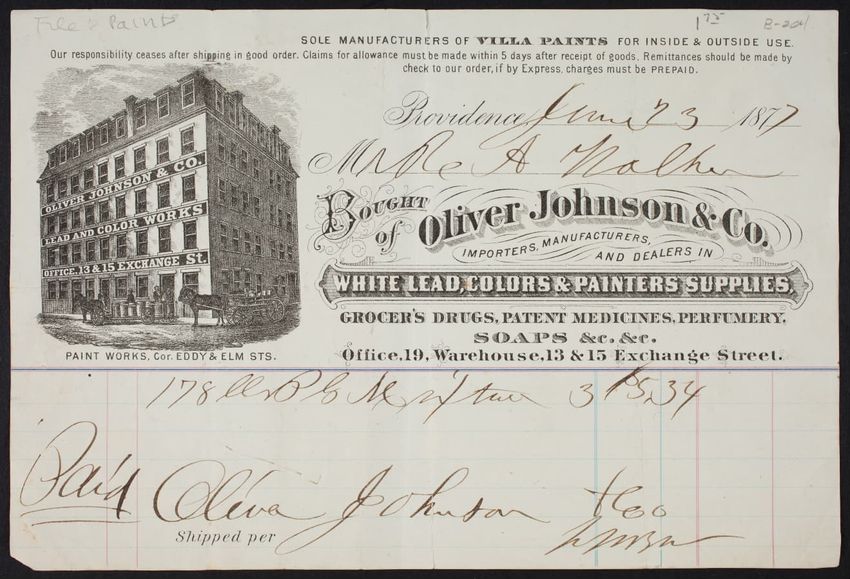 File > Paints
1 75
B-204
SOLE MANUFACTURERS OF VILLA PAINTS FOR INSIDE & OUTSIDE USE.
Our responsibility ceases after shipping in good order. Claims for allowance must be made within 5 days after receipt of goods. Remittances should be made by
check to our order, if by Express, charges must be PREPAID.
Providence, June 23 1877
Mr R A Walker
BOUGHT of Oliver Johnson & Co.
IMPORTERS, MANUFACTURERS, AND DEALERS IN
WHITE LEAD, COLORS & PAINTERS SUPPLIES,
GROCER'S DRUGS, PATENT MEDICINES, PERFUMERY,
SOAPS &c. &c.
Office, 19, Warehouse, 13 & 15 Exchange Street.
OLIVER JOHNSON & CO.
LEAD AND COLOR WORKS
OFFICE, 13 & 15 EXCHANGE St.
PAINT WORKS, Cor. EDDY & ELM STS.
178 Mixture 3 5.34
Paid Oliver Johnson & Co
Shipped per